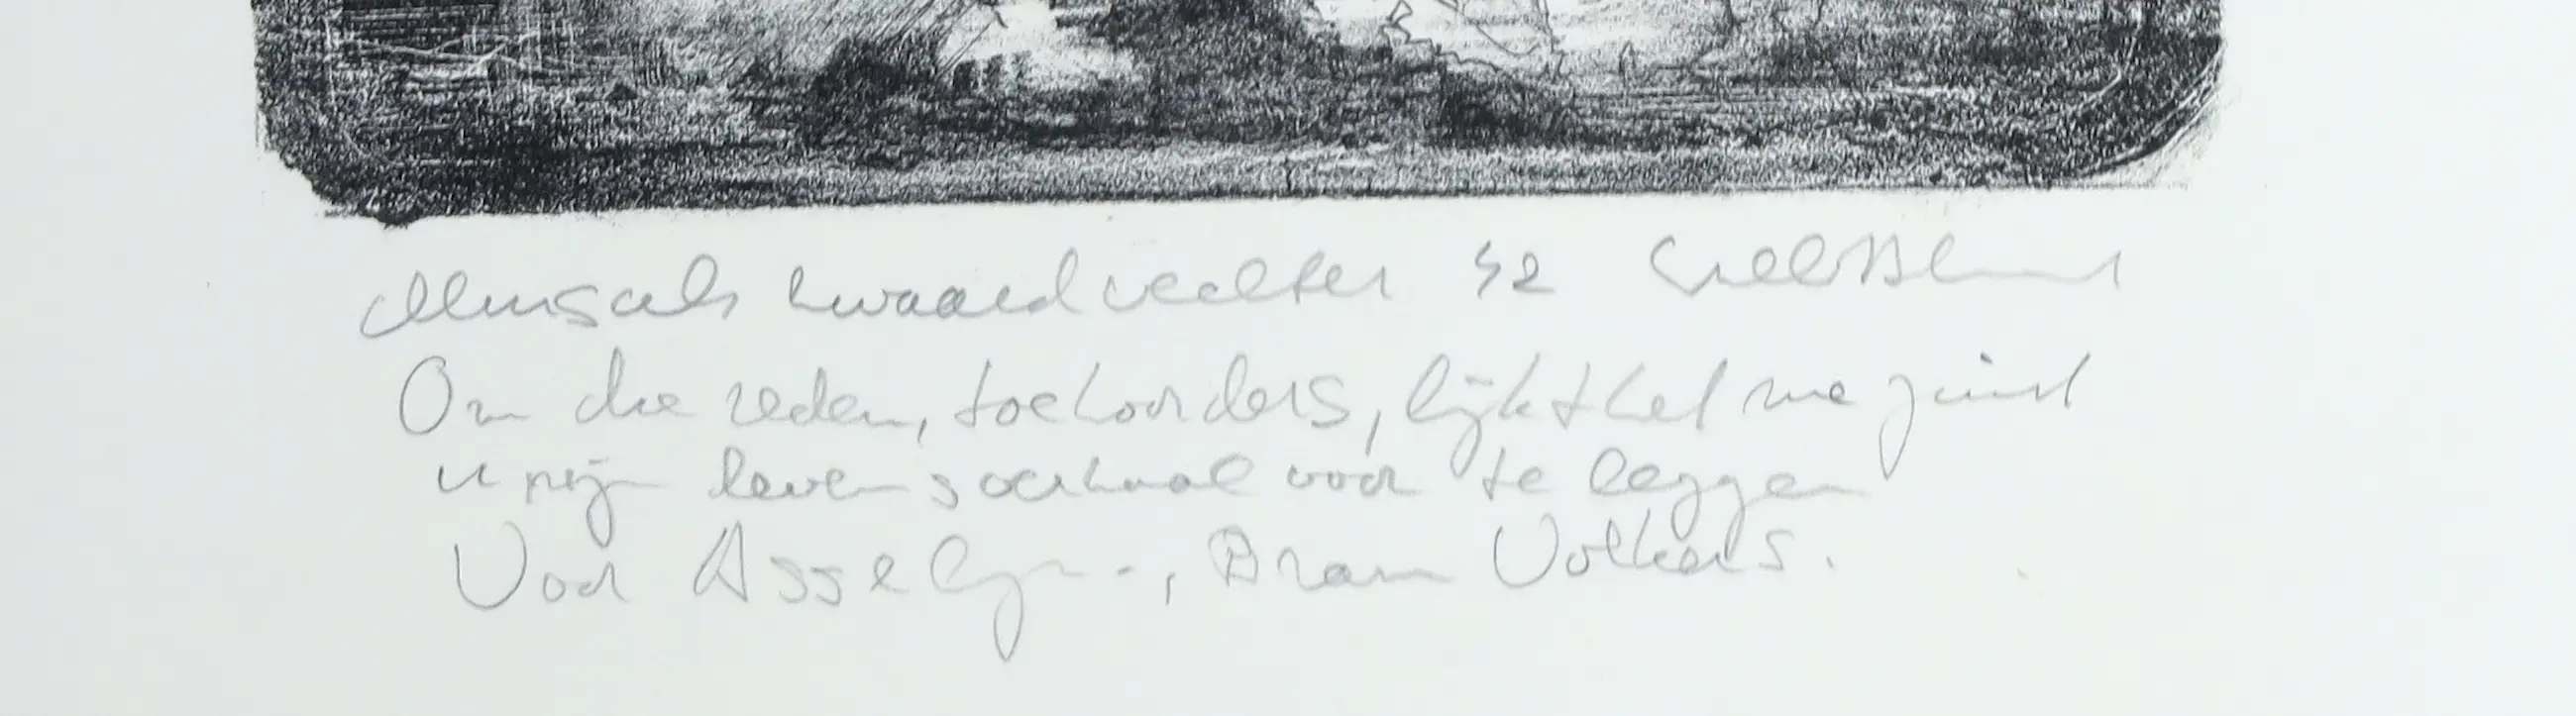 Mens als zwaardvechter 92
Om die reden, toehoorders, lijkt het me juist
u mijn levensverhaal voor te leggen
Voor Asselijn, Bram Volkers.